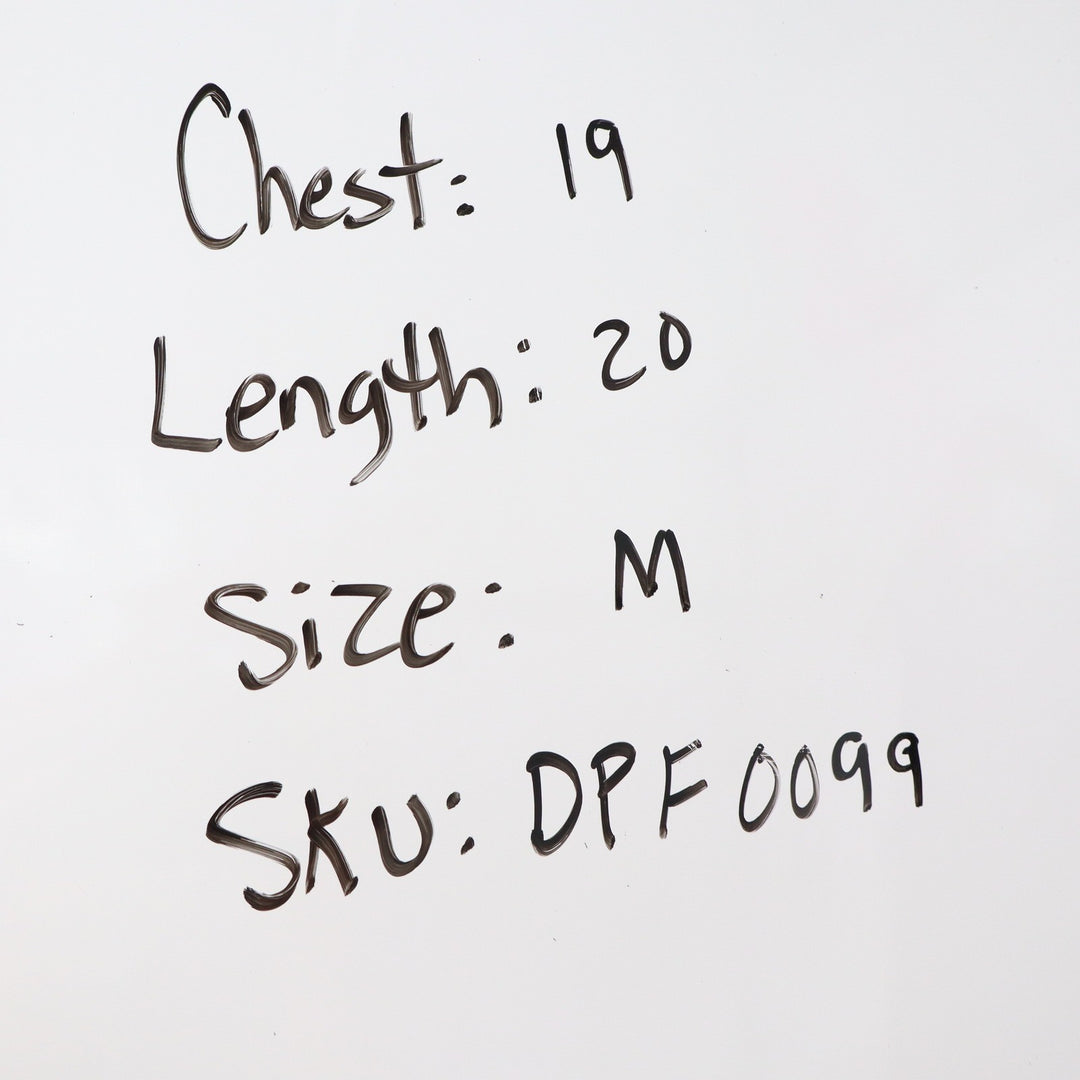 Chest: 19
Length: 20
Size: M
SKU: DPF0099